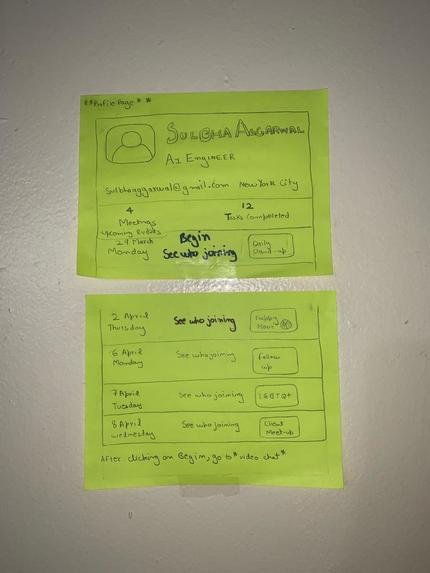 **Profile Page**
SULBHA AGGARWAL
AI ENGINEER
Sulbhaaggarwal@gmail.com New York City
4 12
Meetings Tasks Completed
Upcoming Events
29 March Begin Daily
Monday See who joining Stand-up
2 April See who joining Happy
Thursday Hour
6 April See who joining Follow
Monday up
7 April See who joining LGBTQ+
Tuesday
8 April See who joining Client
Wednesday Meet-up
After clicking on Begin, go to *video chat*